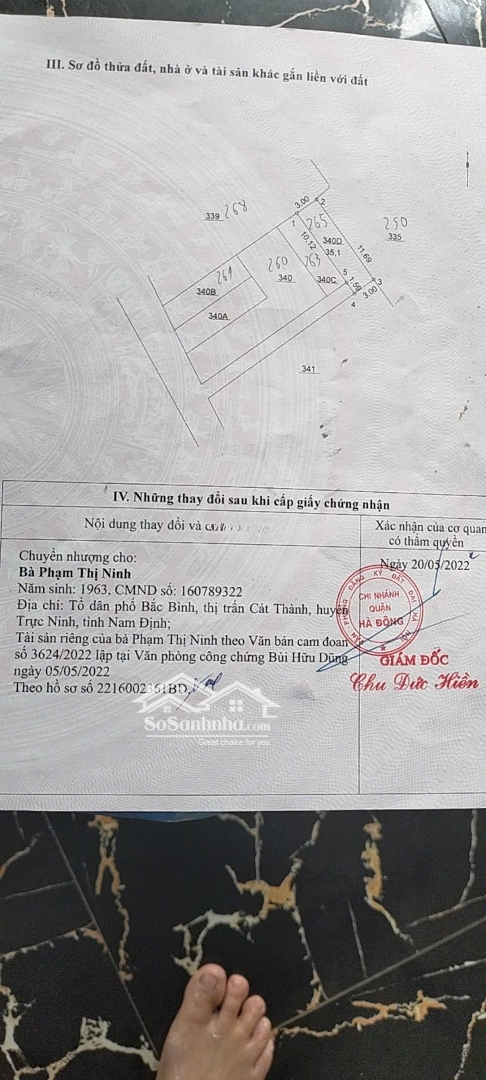 III. Sơ đồ thửa đất, nhà ở và tài sản khác gắn liền với đất
339
268
3.00
2
1
265
250
335
10.12
340D
35,1
11.69
260
263
340
340C
261
340B
340A
5
1.59
3
3.00
4
341
IV. Những thay đổi sau khi cấp giấy chứng nhận
Nội dung thay đổi và
Xác nhận của cơ quan
có thẩm quyền
Chuyển nhượng cho:
Bà Phạm Thị Ninh
Năm sinh: 1963, CMND số: 160789322
Địa chỉ: Tổ dân phố Bắc Bình, thị trấn Cát Thành, huyện
Trực Ninh, tỉnh Nam Định;
Tài sản riêng của bà Phạm Thị Ninh theo Văn bản cam đoan
số 3624/2022 lập tại Văn phòng công chứng Bùi Hữu Dũng
ngày 05/05/2022
Theo hồ sơ số 2216002361BD.
Ngày 20/05/2022
VĂN PHÒNG ĐĂNG KÝ ĐẤT ĐAI HÀ NỘI
CHI NHÁNH
QUẬN
HÀ ĐÔNG
GIÁM ĐỐC
Chu Đức Hiền
SoSanhnha.com
Great choice for you